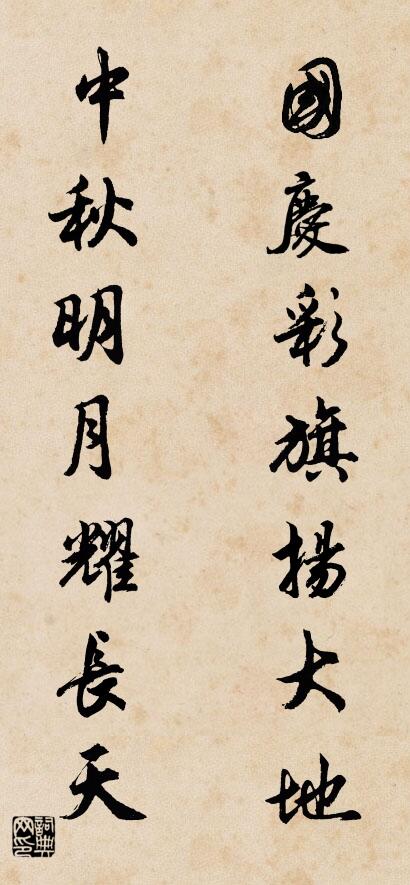 國慶彩旗揚大地
中秋明月耀長天
詞典網印